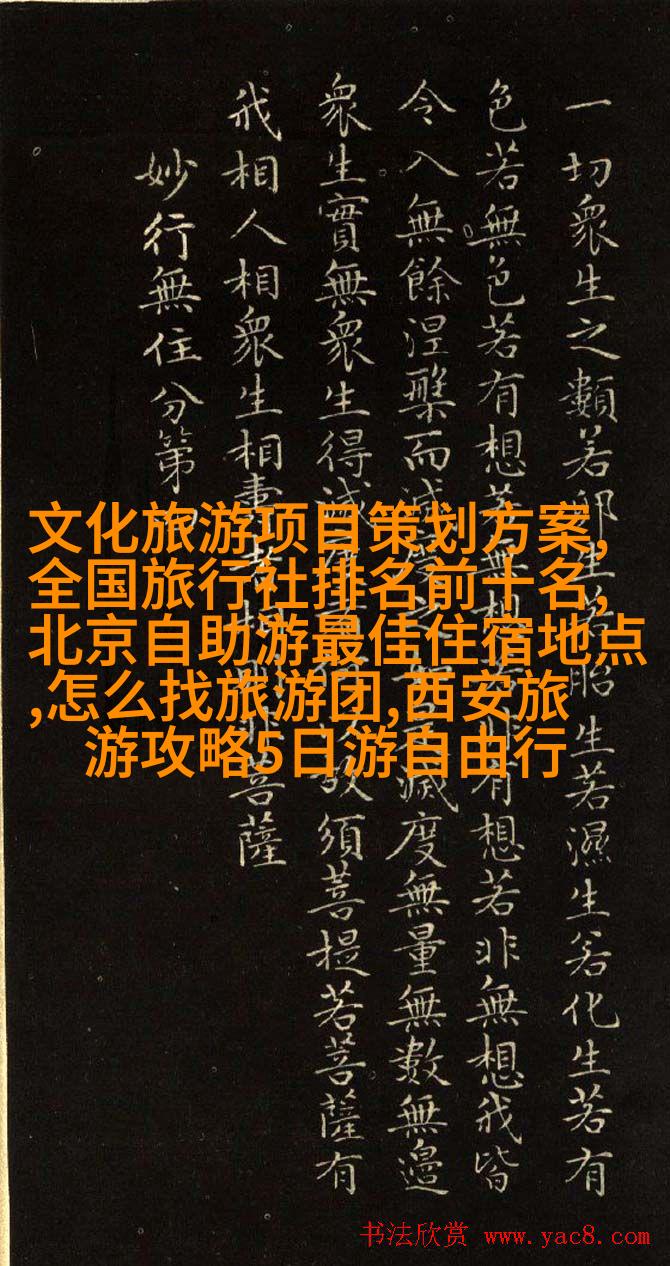 一切衆生之類若卵生若胎生若濕生若化生若有
色若無色若有想若無想若非有想若非無想我皆
令入無餘涅槃而滅滅度無量無數無邊
衆生實無衆生得滅故須菩提若菩薩有
我相人相衆生相壽者相非菩薩
妙行無住分第
文化旅游项目策划方案,
全国旅行社排名前十名,
北京自助游最佳住宿地点
,怎么找旅游团,西安旅
游攻略5日游自由行
书法欣赏 www.yac8.com